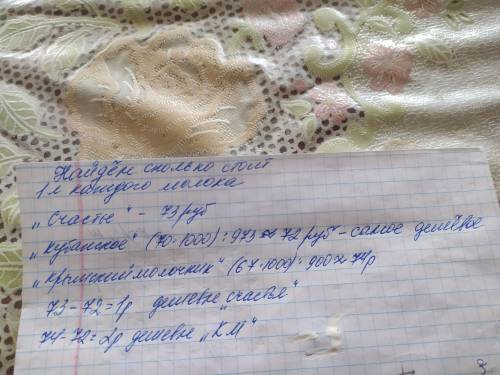 Найдём сколько стоит
1 л каждого молока
"Счастье" - 73 руб
"Кубанское" (70·1000):973≈72 руб - самое дешёвое
"Крымский молочник" (67·1000):900≈74р
73-72=1р дешевле "счастья"
74-72=2р дешевле "КМ"